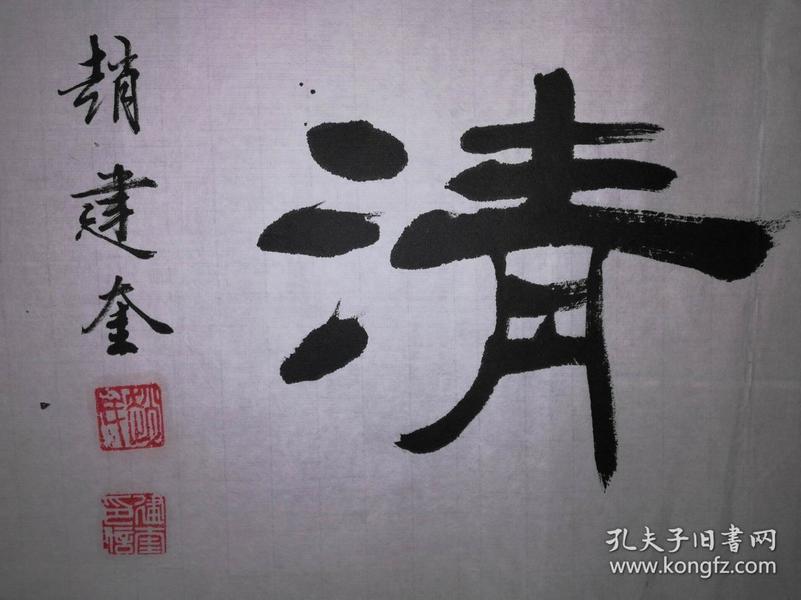 清
趙建奎
孔夫子旧書网
www.kongfz.com